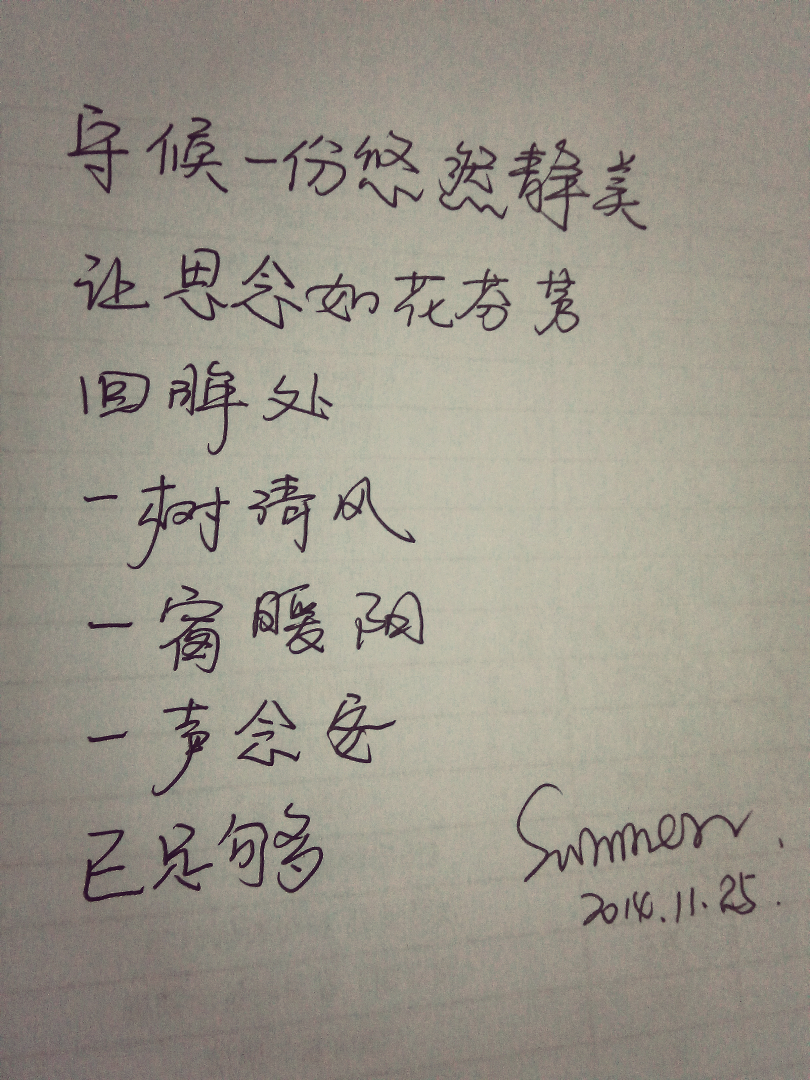 守候一份悠然静美
让思念如花芬芳
回眸处
一树清风
一窗暖阳
一声念安
已足够
Summer.
2014.11.25.